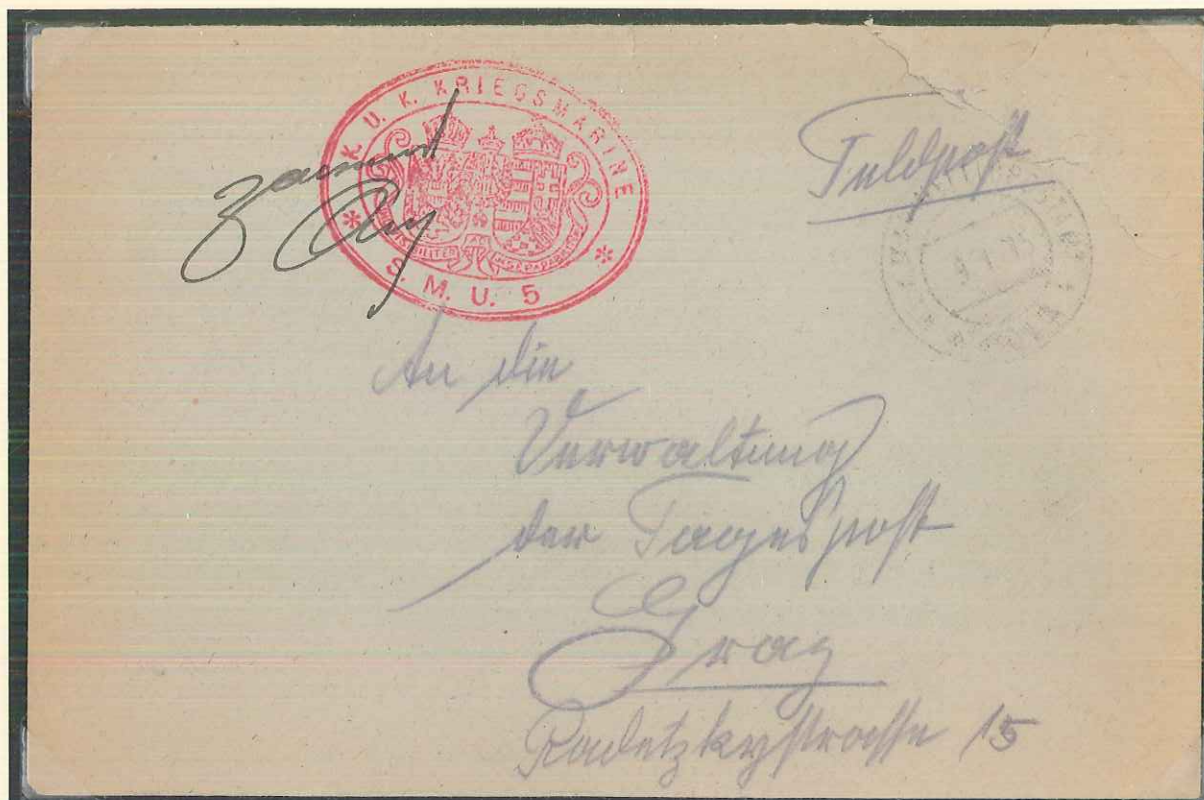 K. U. K. KRIEGSMARINE
S. M. U. 5
Feldpost
An die
Verwaltung
der Tagespost
Graz
Radetzkystrasse 15